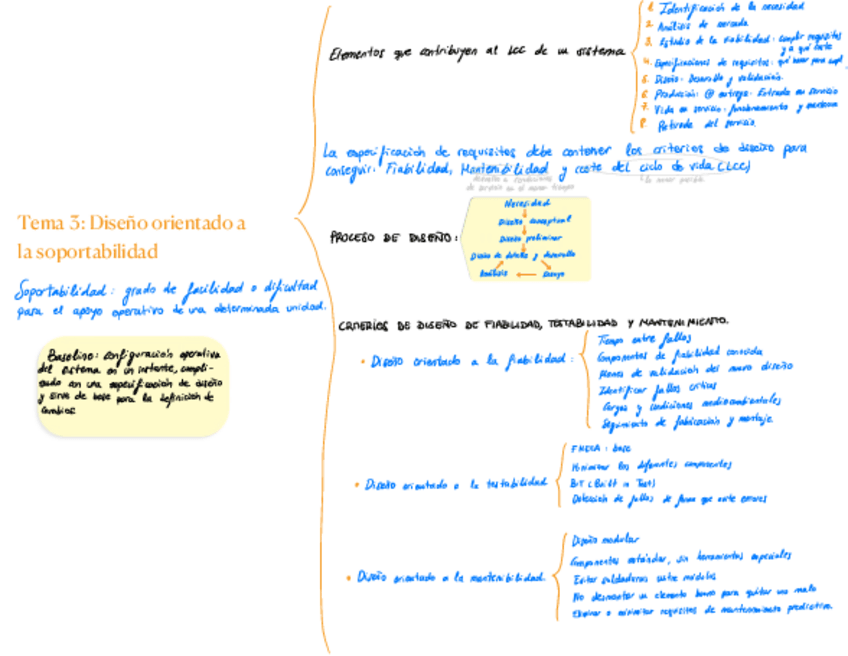 Tema 3: Diseño orientado a
la soportabilidad
Soportabilidad: grado de facilidad o dificultad
para el apoyo operativo de una determinada unidad.
Baseline: configuración operativa
del sistema en un instante, compli-
en una especificación de diseño
y sirve de base para la definición de
cambios
Elementos que contribuyen al LCC de un sistema
1. Identificación de la necesidad
2. Análisis de mercado
3. Estudio de la viabilidad: cumplir requisitos
y a qué coste
4. Especificaciones de requisitos: qué hacer para
5. Diseño: Desarrollo y validación
6. Producción: entrega. Entrada en servicio
7. Vida en servicio: funcionamiento y
8. Retirada del servicio
La especificación de requisitos debe contener los criterios de diseño para
conseguir: Fiabilidad, Mantenibilidad y coste del ciclo de vida (LCC)
condiciones
de servicio en el menor tiempo
lo menor posible
PROCESO DE DISEÑO:
Necesidad
Diseño conceptual
Diseño preliminar
Diseño de detalle y desarrollo
Análisis
Ensayo
CRITERIOS DE DISEÑO DE FIABILIDAD, TESTABILIDAD Y MANTENIMIENTO.
• Diseño orientado a la fiabilidad:
Tiempo entre fallos
Componentes de fiabilidad conocida
Planes de validación del nuevo diseño
Identificar fallos críticos
Cargas y condiciones medioambientales
Seguimiento de fabricación y montaje
• Diseño orientado a la testabilidad
FMECA: base
Minimizar los diferentes componentes
BIT (Built in Test)
Detección de fallos de forma que evite errores
• Diseño orientado a la mantenibilidad
Diseño modular
Componentes estándar, sin herramientas especiales
Evitar soldaduras entre módulos
No desmontar un elemento bueno para quitar uno malo
Eliminar o minimizar requisitos de mantenimiento predictivo.